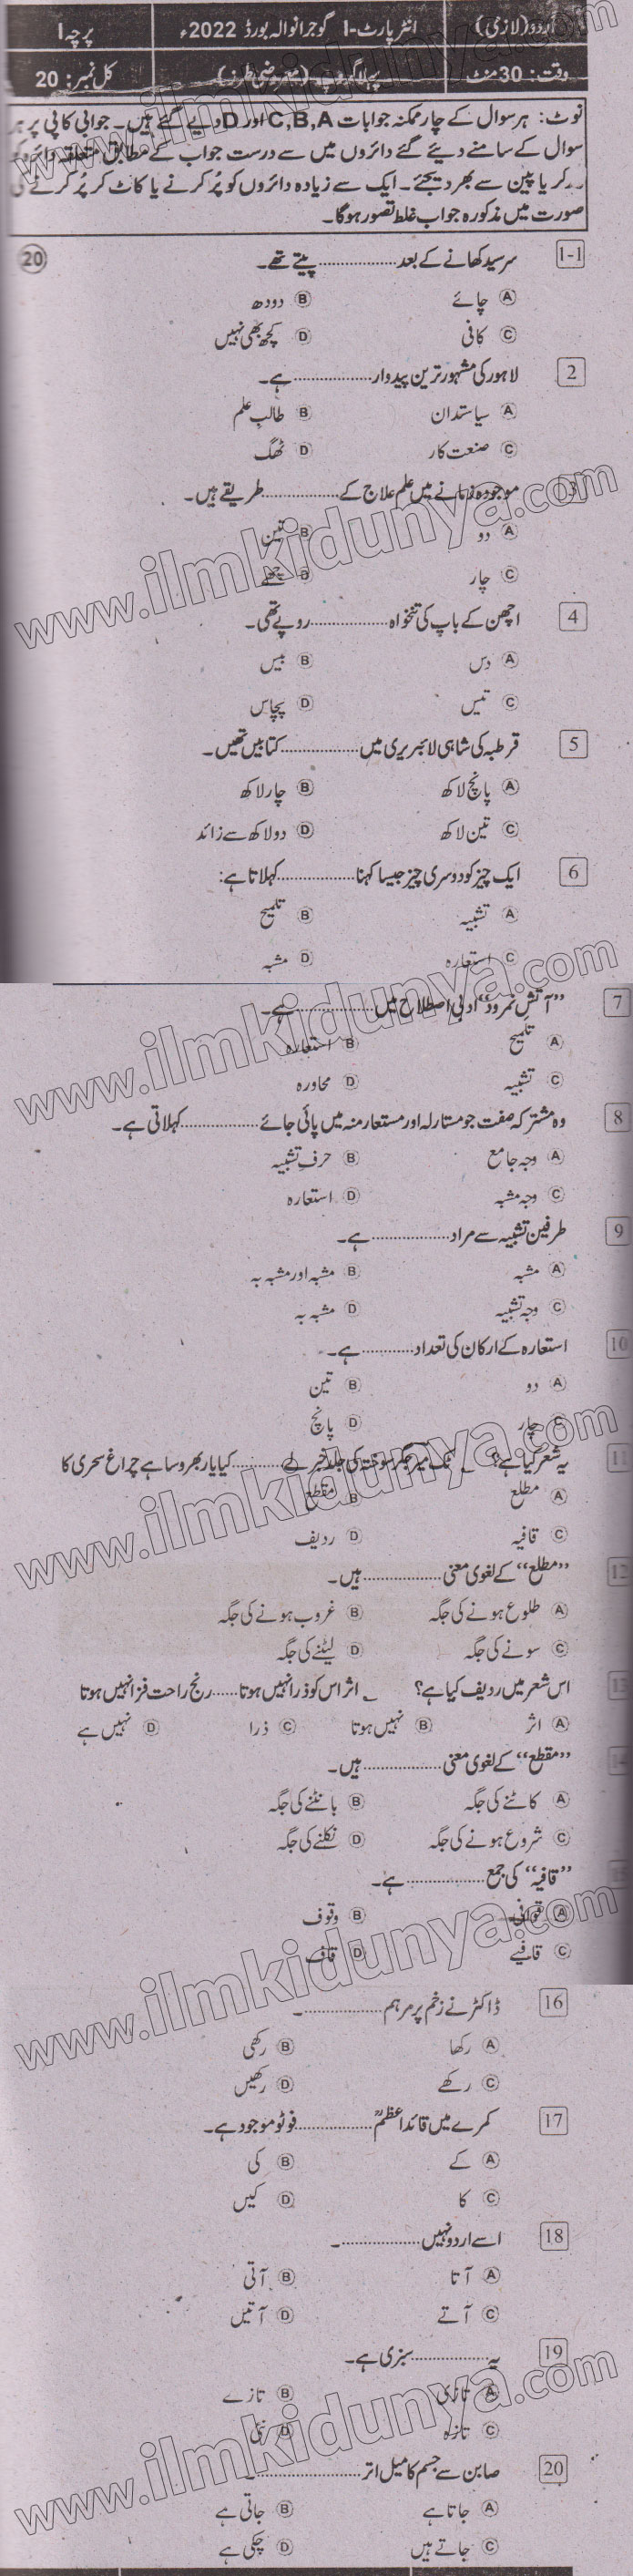 اُردو (لازمی) انٹر پارٹ-I گوجرانوالہ بورڈ 2022ء پرچہ I
وقت: 30 منٹ پہلا گروپ (معروضی طرز) کل نمبر: 20
نوٹ: ہر سوال کے چار ممکنہ جوابات C,B,A اور D دیے گئے ہیں۔ جوابی کاپی پر ہر
سوال کے سامنے دیئے گئے دائروں میں سے درست جواب کے مطابق متعلقہ دائرہ کو
مارکر یا پین سے بھر دیجئے۔ ایک سے زیادہ دائروں کو پُر کرنے یا کاٹ کر پُر کرنے کی
صورت میں مذکورہ جواب غلط تصور ہوگا۔
1-1 سرسید کھانے کے بعد .................. پیتے تھے۔ 20
A چائے B دودھ
C کافی D کچھ بھی نہیں
2 لاہور کی مشہور ترین پیدوار .................. ہے۔
A سیاستدان B طالب علم
C صنعت کار D ٹھگ
3 موجودہ زمانے میں علم علاج کے .................. طریقے ہیں۔
A دو B تین
C چار D چھے
4 اچھن کے باپ کی تنخواہ .................. روپے تھی۔
A دس B بیس
C تیس D پچاس
5 قرطبہ کی شاہی لائبریری میں .................. کتابیں تھیں۔
A پانچ لاکھ B چار لاکھ
C تین لاکھ D دو لاکھ سے زائد
6 ایک چیز کو دوسری چیز جیسا کہنا .................. کہلاتا ہے:
A تشبیہ B تلمیح
C استعارہ D مشبہ
7 ”آتشِ نمرود“ ادبی اصطلاح میں .................. ہے۔
A تلمیح B استعارہ
C تشبیہ D محاورہ
8 وہ مشترکہ صفت جو مستار لہ اور مستعار منہ میں پائی جائے .................. کہلاتی ہے۔
A وجہ جامع B حرفِ تشبیہ
C وجہ مشبہ D استعارہ
9 طرفین تشبیہ سے مراد .................. ہے۔
A مشبہ B مشبہ اور مشبہ بہ
C وجہ تشبیہ D مشبہ بہ
10 استعارہ کے ارکان کی تعداد ............ ہے۔
A دو B تین
C چار D پانچ
11 یہ شعر کیا ہے؟ ؎ ٹک میر جگر سوختہ کی جلد خبر لے ............ کیا یار بھروسا ہے چراغ سحری کا
A مطلع B مقطع
C قافیہ D ردیف
12 ”مطلع“ کے لغوی معنی .................. ہیں۔
A طلوع ہونے کی جگہ B غروب ہونے کی جگہ
C سونے کی جگہ D لیٹنے کی جگہ
13 اس شعر میں ردیف کیا ہے؟ ؎ اثر اس کو ذرا نہیں ہوتا ...... رنج راحت فزا نہیں ہوتا
A اثر B نہیں ہوتا C ذرا D نہیں ہے
14 ”مقطع“ کے لغوی معنی .................. ہیں۔
A کاٹنے کی جگہ B بانٹنے کی جگہ
C شروع ہونے کی جگہ D نکلنے کی جگہ
15 ”قافیہ“ کی جمع .................. ہے۔
A قوافی B وقوف
C قافیے D قاف
16 ڈاکٹر نے زخم پر مرہم ..................۔
A رکھا B رکھی
C رکھے D رکھیں
17 کمرے میں قائداعظمؒ .................. فوٹو موجود ہے۔
A کے B کی
C کا D کیں
18 اسے اردو نہیں ..................۔
A آتا B آتی
C آتے D آتیں
19 یہ .................. سبزی ہے۔
A تازی B تازے
C تازہ D نئی
20 صابن سے جسم کا میل اتر ..................۔
A جاتا ہے B جاتی ہے
C جاتے ہیں D چکی ہے
www.ilmkidunya.com
www.ilmkidunya.com
www.ilmkidunya.com
www.ilmkidunya.com
www.ilmkidunya.com
www.ilmkidunya.com